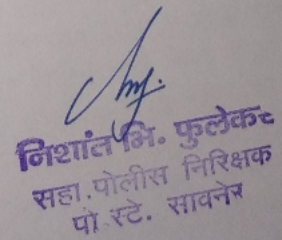 निशांत भि. फुलेकर
सहा.पोलीस निरिक्षक
पो.स्टे. सावनेर